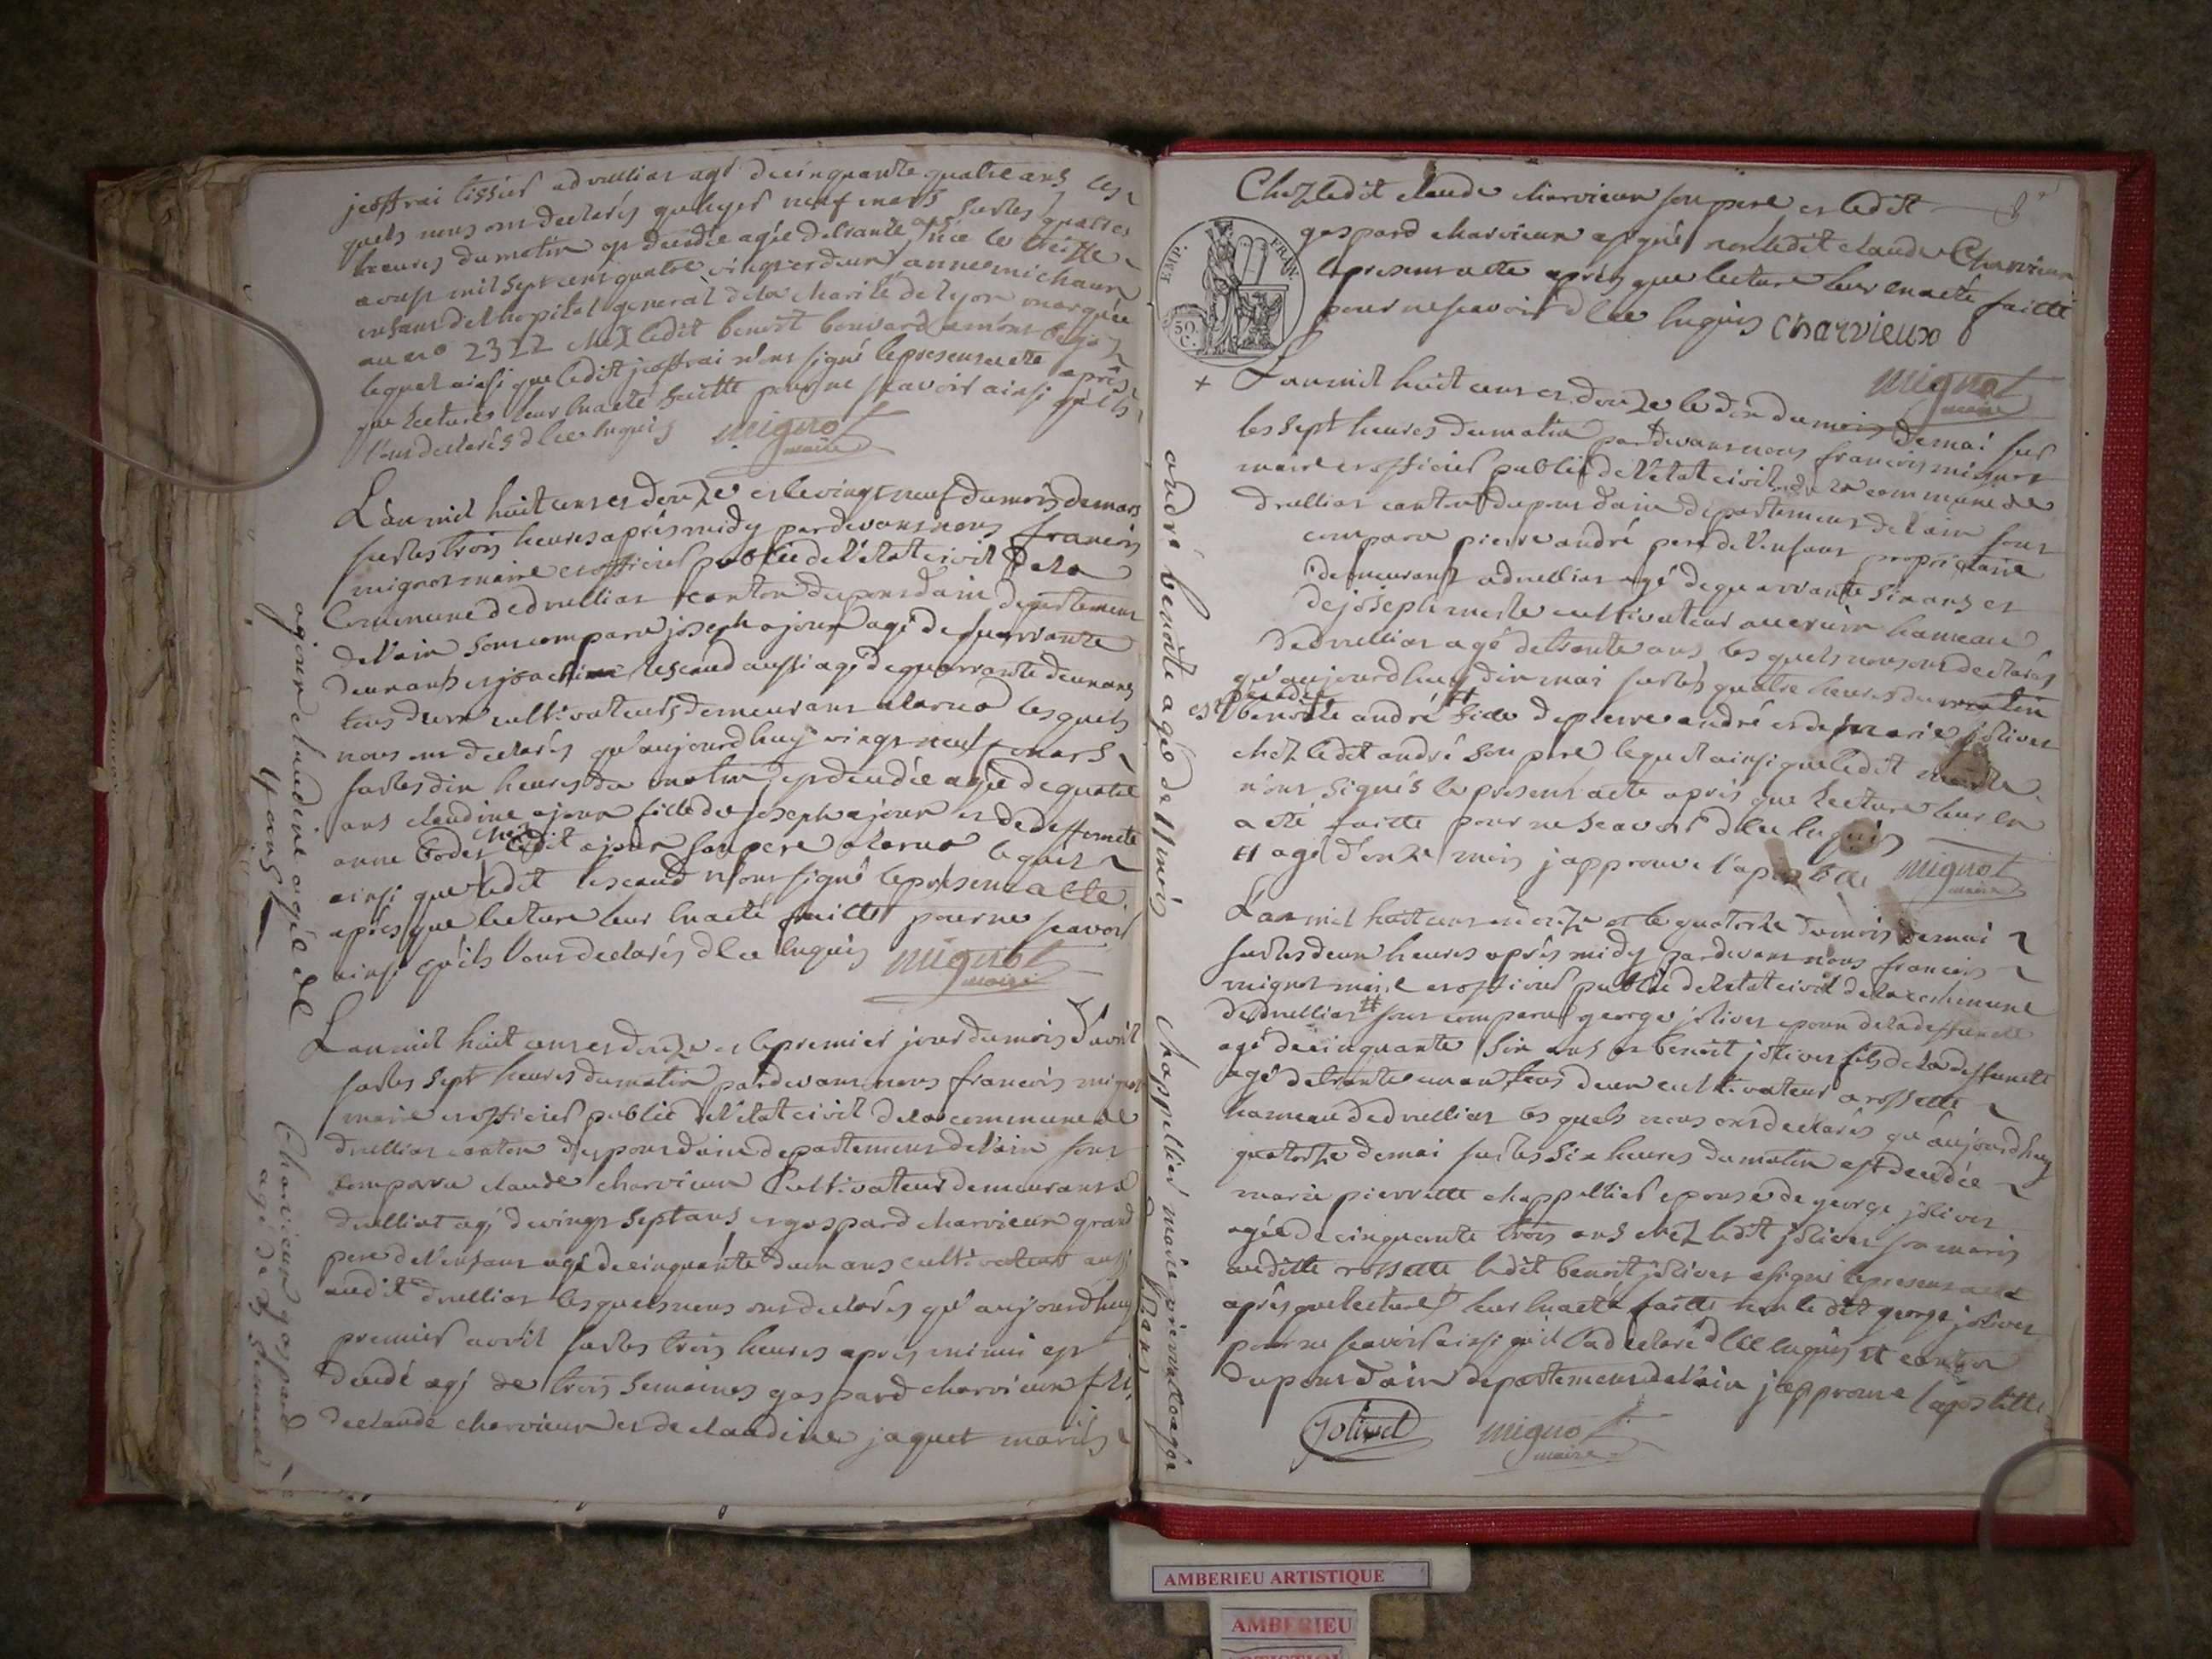 jeoffrai tissier a druillias agé de cinquante quatre ans les
quels nous ont declarés qu'hyer neuf mars sur les quatres
heures du matin est decedée agée de trante ans née le treize
aoust mil sept cent quatre vingt et deux anne michaux
enfant de l'hopital general de la charité de lyon marquée
au no 2322 chez ledit benoit bouvard
lequel ainsi que ledit jeoffrai n'ont signé le present acte après
que lecture leur en a eté faitte pour ne scavoir ainsi qu'ils
l'ont declarés d'ce enquis mignot
maire
L'an mil huit cent et douze et le vingt neuf du mois de mars
sur les trois heures après midy pardevant nous francois
mignot maire et officier public de l'état civil de la
Commune de druillias canton du pont d'ain departement
de l'ain sont comparu joseph ajoux agé de quarrante
deux ans et joachim lescaud aussi agé de quarrante deux ans
tous deux cultivateurs demeurant a la rua lesquels
nous ont declarés qu'aujourdhuy vingt neuf mars
sur les dix heures du matin est decedée agée de quatre
ans claudine ajoux fille de joseph ajoux et de deffunte
anne bodet chez ledit ajoux son pere a la rua lequel
ainsi que ledit lescaud n'ont signé le present acte
après que lecture leur en a eté faitte pour ne scavoir
ainsi qu'ils l'ont declarés d'ce enquis mignot
maire
ajoux claudine agée de
4 ans
L'an mil huit cent et douze et le premier jour du mois d'avril
sur les sept heures du matin pardevant nous francois mignot
maire et officier public de l'état civil de la commune de
druillias canton du pont d'ain departement de l'ain sont
comparu claude charvieux Cultivateur demeurant a
druilliat agé de vingt sept ans et gaspard charvieux grand
pere de l'enfant agé de cinquante deux ans cultivateur aussi
audit druillias lesquels nous ont declarés qu'aujourdhuy
premier avril sur les trois heures après minui est
decedé agé de trois semaines gaspard charvieux fils
de claude charvieux et de claudine jaquet mariés
Charvieux gaspard
agé de 3 semaines
Chez ledit claude charvieux son pere et ledit
gaspard charvieux a signé non ledit claude Charvieux
le present acte après que lecture leur en a eté faitte
pour ne scavoir d'ce enquis Charvieux
mignot
maire
TEMP. FRAN.
50 C.
+ L'an mil huit cent et douze le dix du mois de mai sur
les sept heures du matin pardevant nous francois mignot
maire et officier public de l'état civil de la commune de
druillias canton du pont d'ain departement de l'ain sont
comparu pierre andré pere de l'enfant proprietaire
demeurant a druillias agé de quarrante six ans et
de joseph cultivateur hameau
de druillias agé de trante ans lesquels nous ont declarés
qu'aujourdhuy dix mai sur les quatre heures du matin
est decedée
benoite andré # de pierre andré et de marie jolivet
chez ledit andré son pere lequel ainsi que ledit
n'ont signés le present acte après que lecture leur en
a eté faitte pour ne scavoir d'ce enquis
# agé d'onze mois j'approuve l'apostille mignot
maire
andré benoite agé de 11 mois
L'an mil huit cent et douze et le quatorze du mois de mai
sur les deux heures après midy pardevant nous francois
mignot maire et officier public de l'état civil de la commune
de druillias # sont comparu george jolivet epoux de la deffuncte
agé de cinquante six ans et benoit jolivet fils de la deffuncte
agé de trante un an tous deux cultivateur a rossette
hameau de druillias lesquels nous ont declarés qu'aujourdhuy
quatorze de mai sur les six heures du matin est decedée
marie pierrette chappellier epouse de george jolivet
agée de cinquante trois ans chez ledit jolivet son maris
auditte rossette ledit benoit jolivet a signé le present acte
après que lecture leur en a eté faitte non ledit george jolivet
pour ne scavoir ainsi qu'il l'a declaré d'ce enquis # canton
du pont d'ain departement de l'ain j'approuve l'apostille
Jolivet mignot
maire
Chappellier marie pierrette agée
53 ans
AMBERIEU ARTISTIQUE
AMBERIEU
ARTISTIQUE